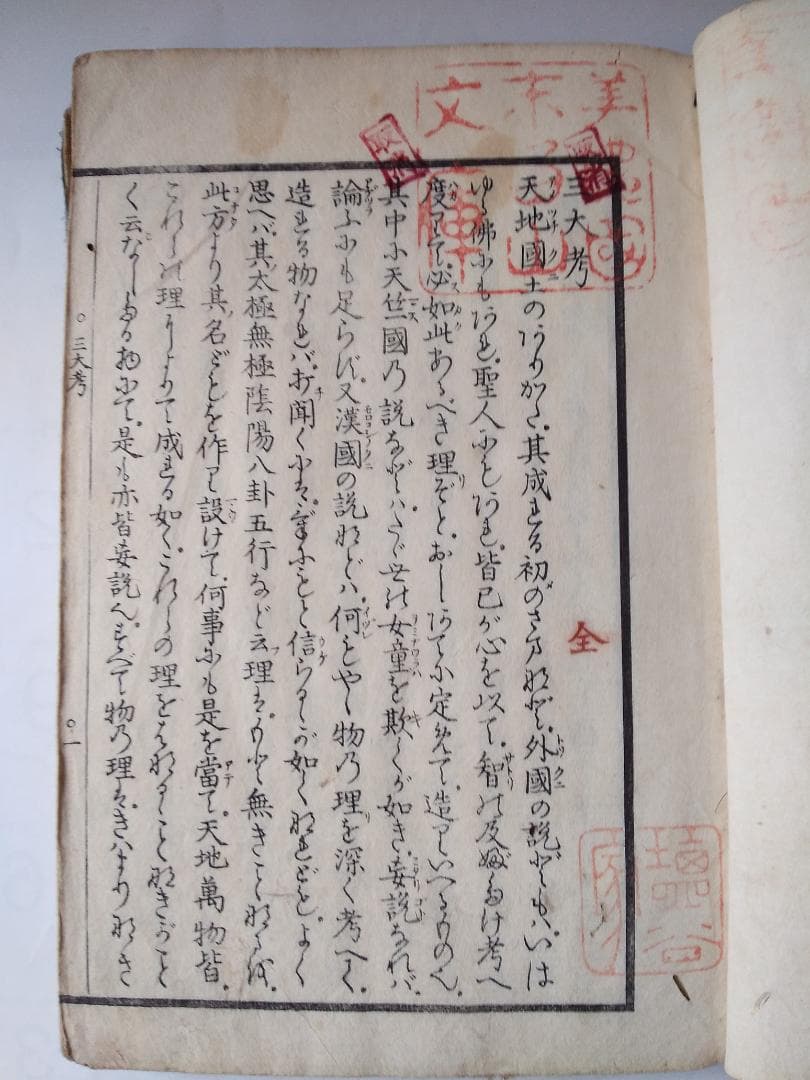 三大考
全
天地國土のありかた。其成れる初のさまなど。外國の説どもハ。いは
ゆる佛にもあれ。聖人にもあれ。皆己が心を以て。智の及ぶたけ考へ
度りて。必如此あるべき理ぞと。おしあてに定めて。造りいへるもの也。
其中に天竺國乃説などハ。たゞ世の女童を欺くが如き。妄説なれバ。
論ふにも足らず。又漢國の説などハ。何もやゝ物乃理を深く考へて。
造れる物なれバ。打聞くには。げにもと信らるゝが如くなれども。よく
思へバ。其太極無極陰陽八卦五行など云理は。もと無きことなるを。
此方より其名どもを作り設けて。何事にも是を當て。天地萬物皆。
これらの理によりて成れる如く。これらの理をはなるゝこと無きがごと
く云なしたる物にて。是も亦皆妄説也。すべて物乃理は。きハまりなき
○三大考
○一
鹽谷